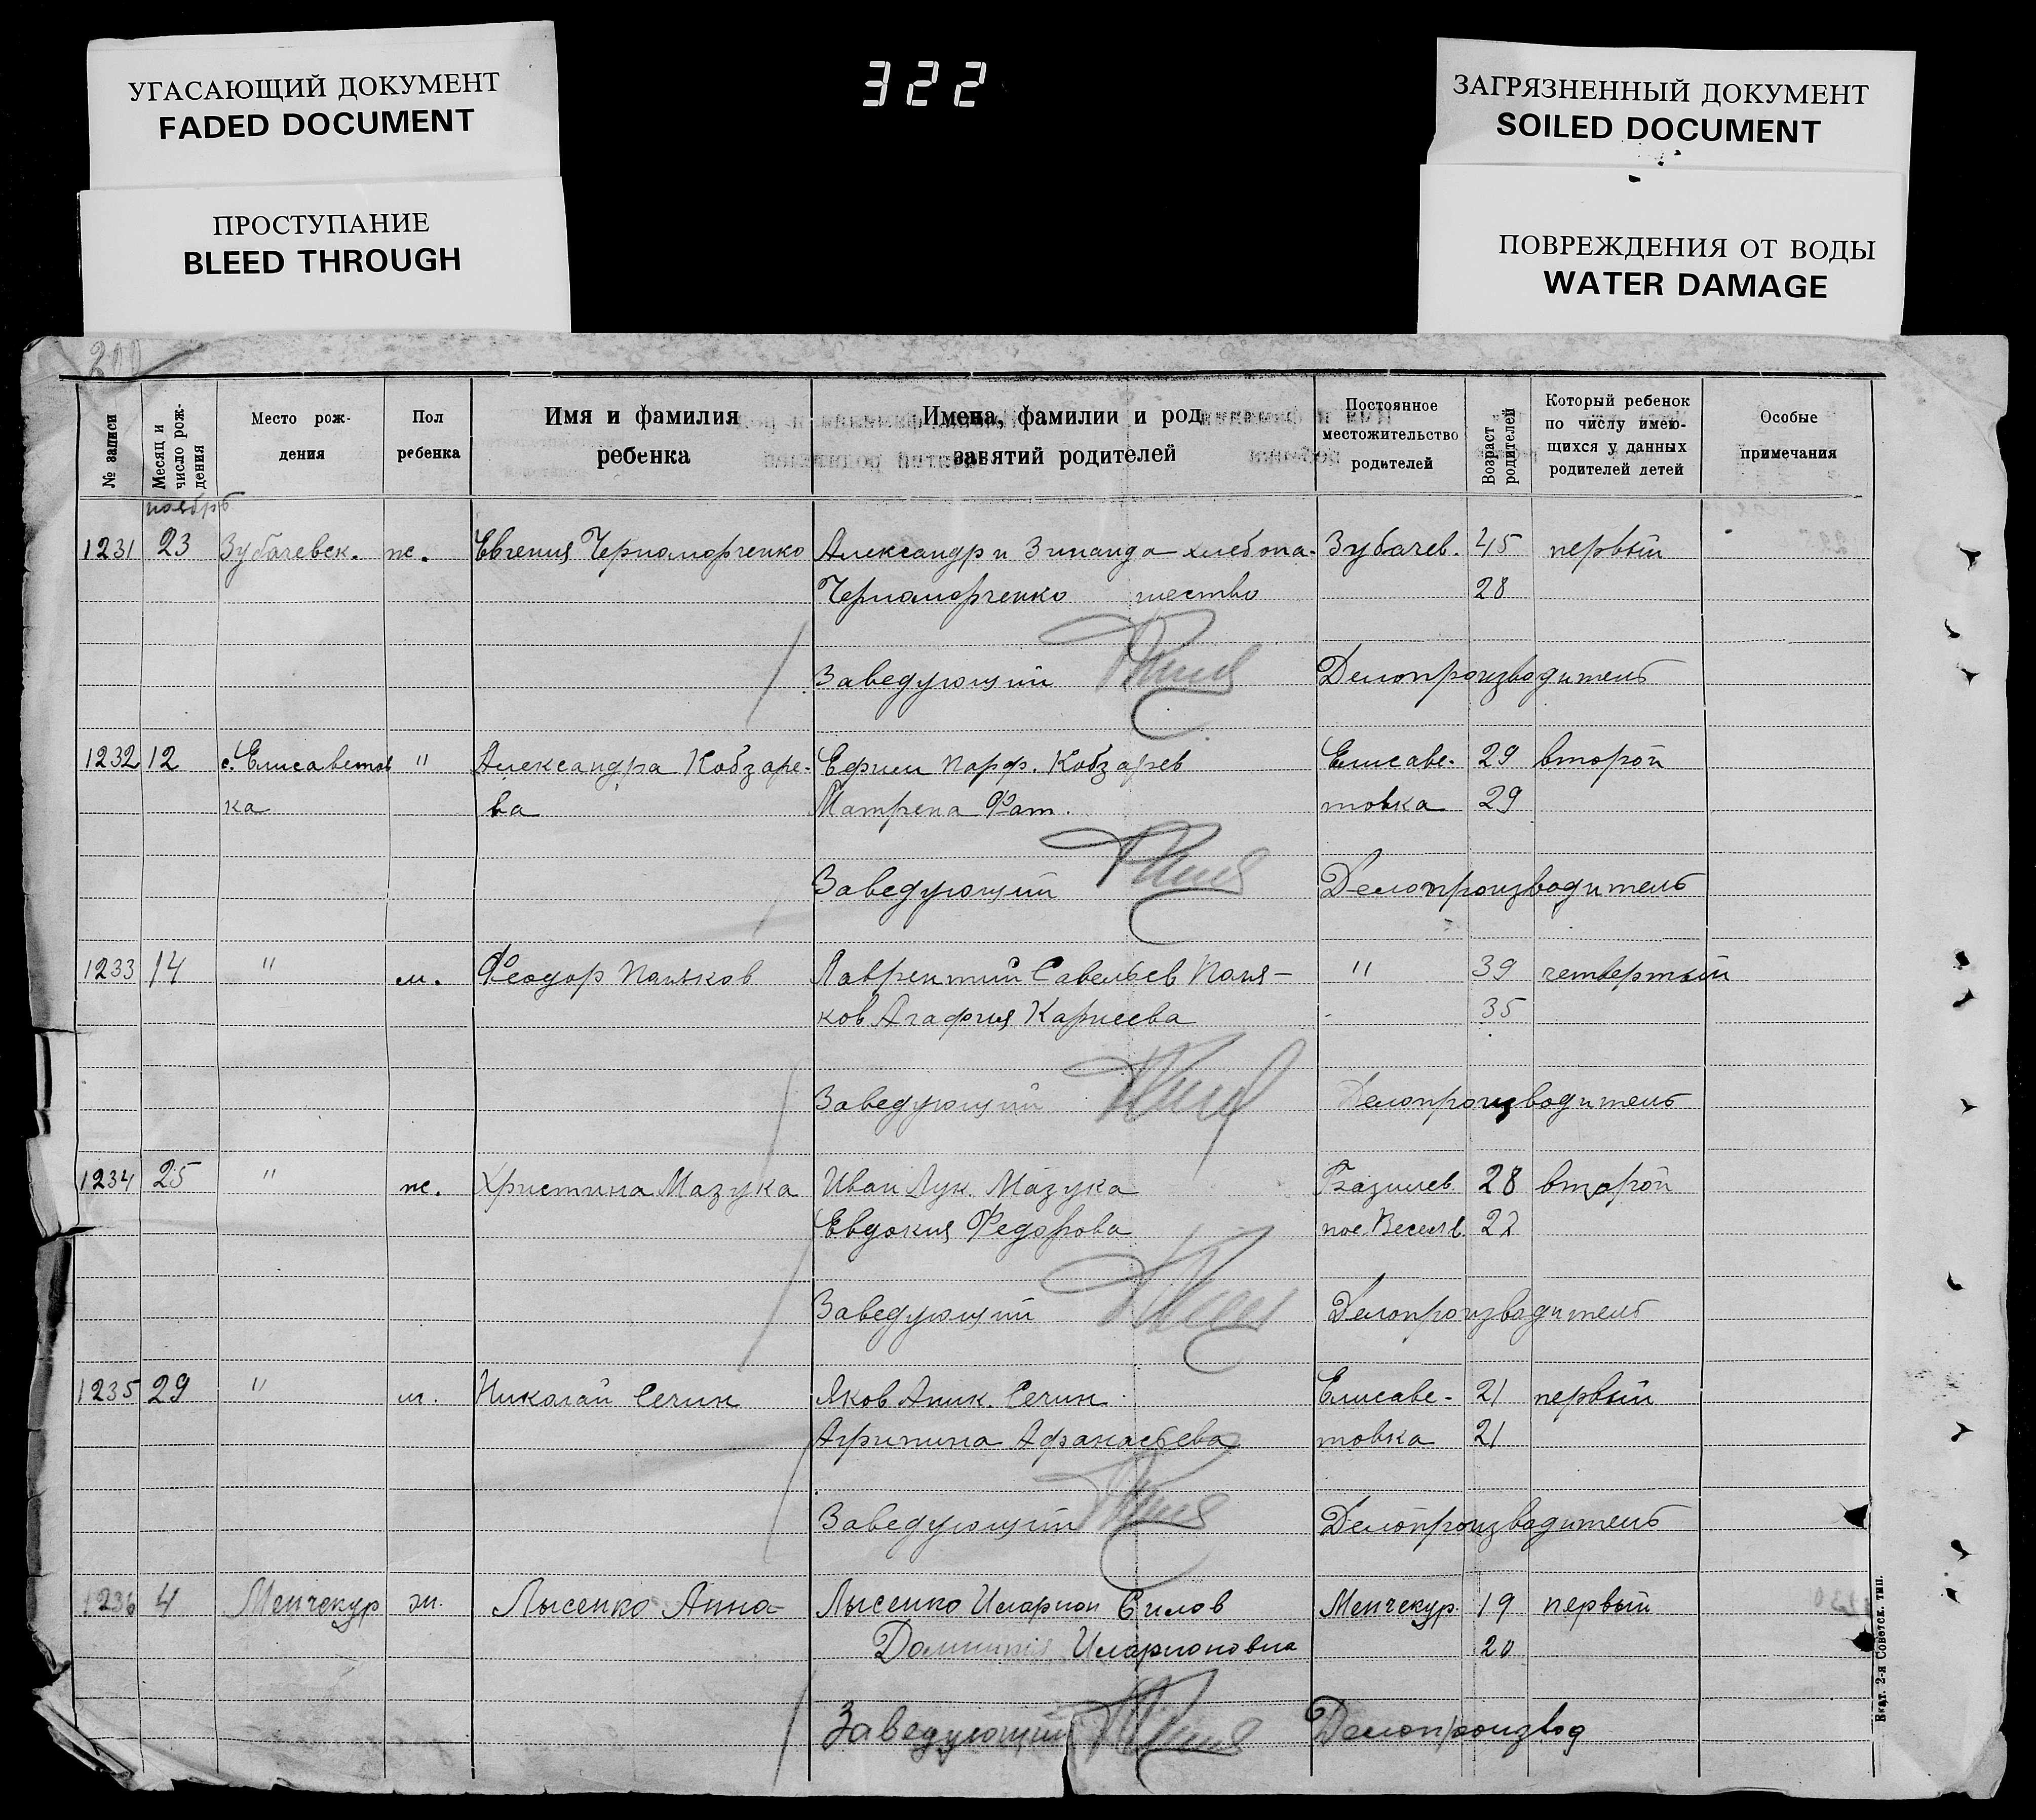 УГАСАЮЩИЙ ДОКУМЕНТ
FADED DOCUMENT
ПРОСТУПАНИЕ
BLEED THROUGH
322
ЗАГРЯЗНЕННЫЙ ДОКУМЕНТ
SOILED DOCUMENT
ПОВРЕЖДЕНИЯ ОТ ВОДЫ
WATER DAMAGE
200
№ записи
Месяц и число рождения
Место рождения
Пол ребенка
Имя и фамилия ребенка
Имена, фамилии и род занятий родителей
Постоянное местожительство родителей
Возраст родителей
Который ребенок по числу имеющихся у данных родителей детей
Особые примечания
ноябрь
1231 23 Зубачевск. ж. Евгения Черноморченко Александр и Зинаида хлебопа- Зубачев. 45 первый
Черноморченко шество 28
Заведующий Делопроизводитель
1232 12 с. Елисаветов " Александра Кобзаре- Ефим Парф. Кобзарев Елисаве- 29 второй
ка ва Матрена Фат. товка 29
Заведующий Делопроизводитель
1233 14 " м. Феодор Паньков Лаврентий Савельев Пань- " 39 четвертый
ков Агафия Карпеева 35
Заведующий Делопроизводитель
1234 25 " ж. Христина Мазука Иван Лук. Мазука 28 второй
Евдокия Федорова пос. Весел 22
Заведующий Делопроизводитель
1235 29 " м. Николай Сечин Яков Аник. Сечин Елисаве- 21 первый
Агрипина Афанасьева товка 21
Заведующий Делопроизводитель
1236 4 Менчекур ж. Лысенко Анна Лысенко Иларион Силов Менчекур. 19 первый
Домникия Иларионовна 20
Заведующий Делопроизвод
2-я Советск. тип.